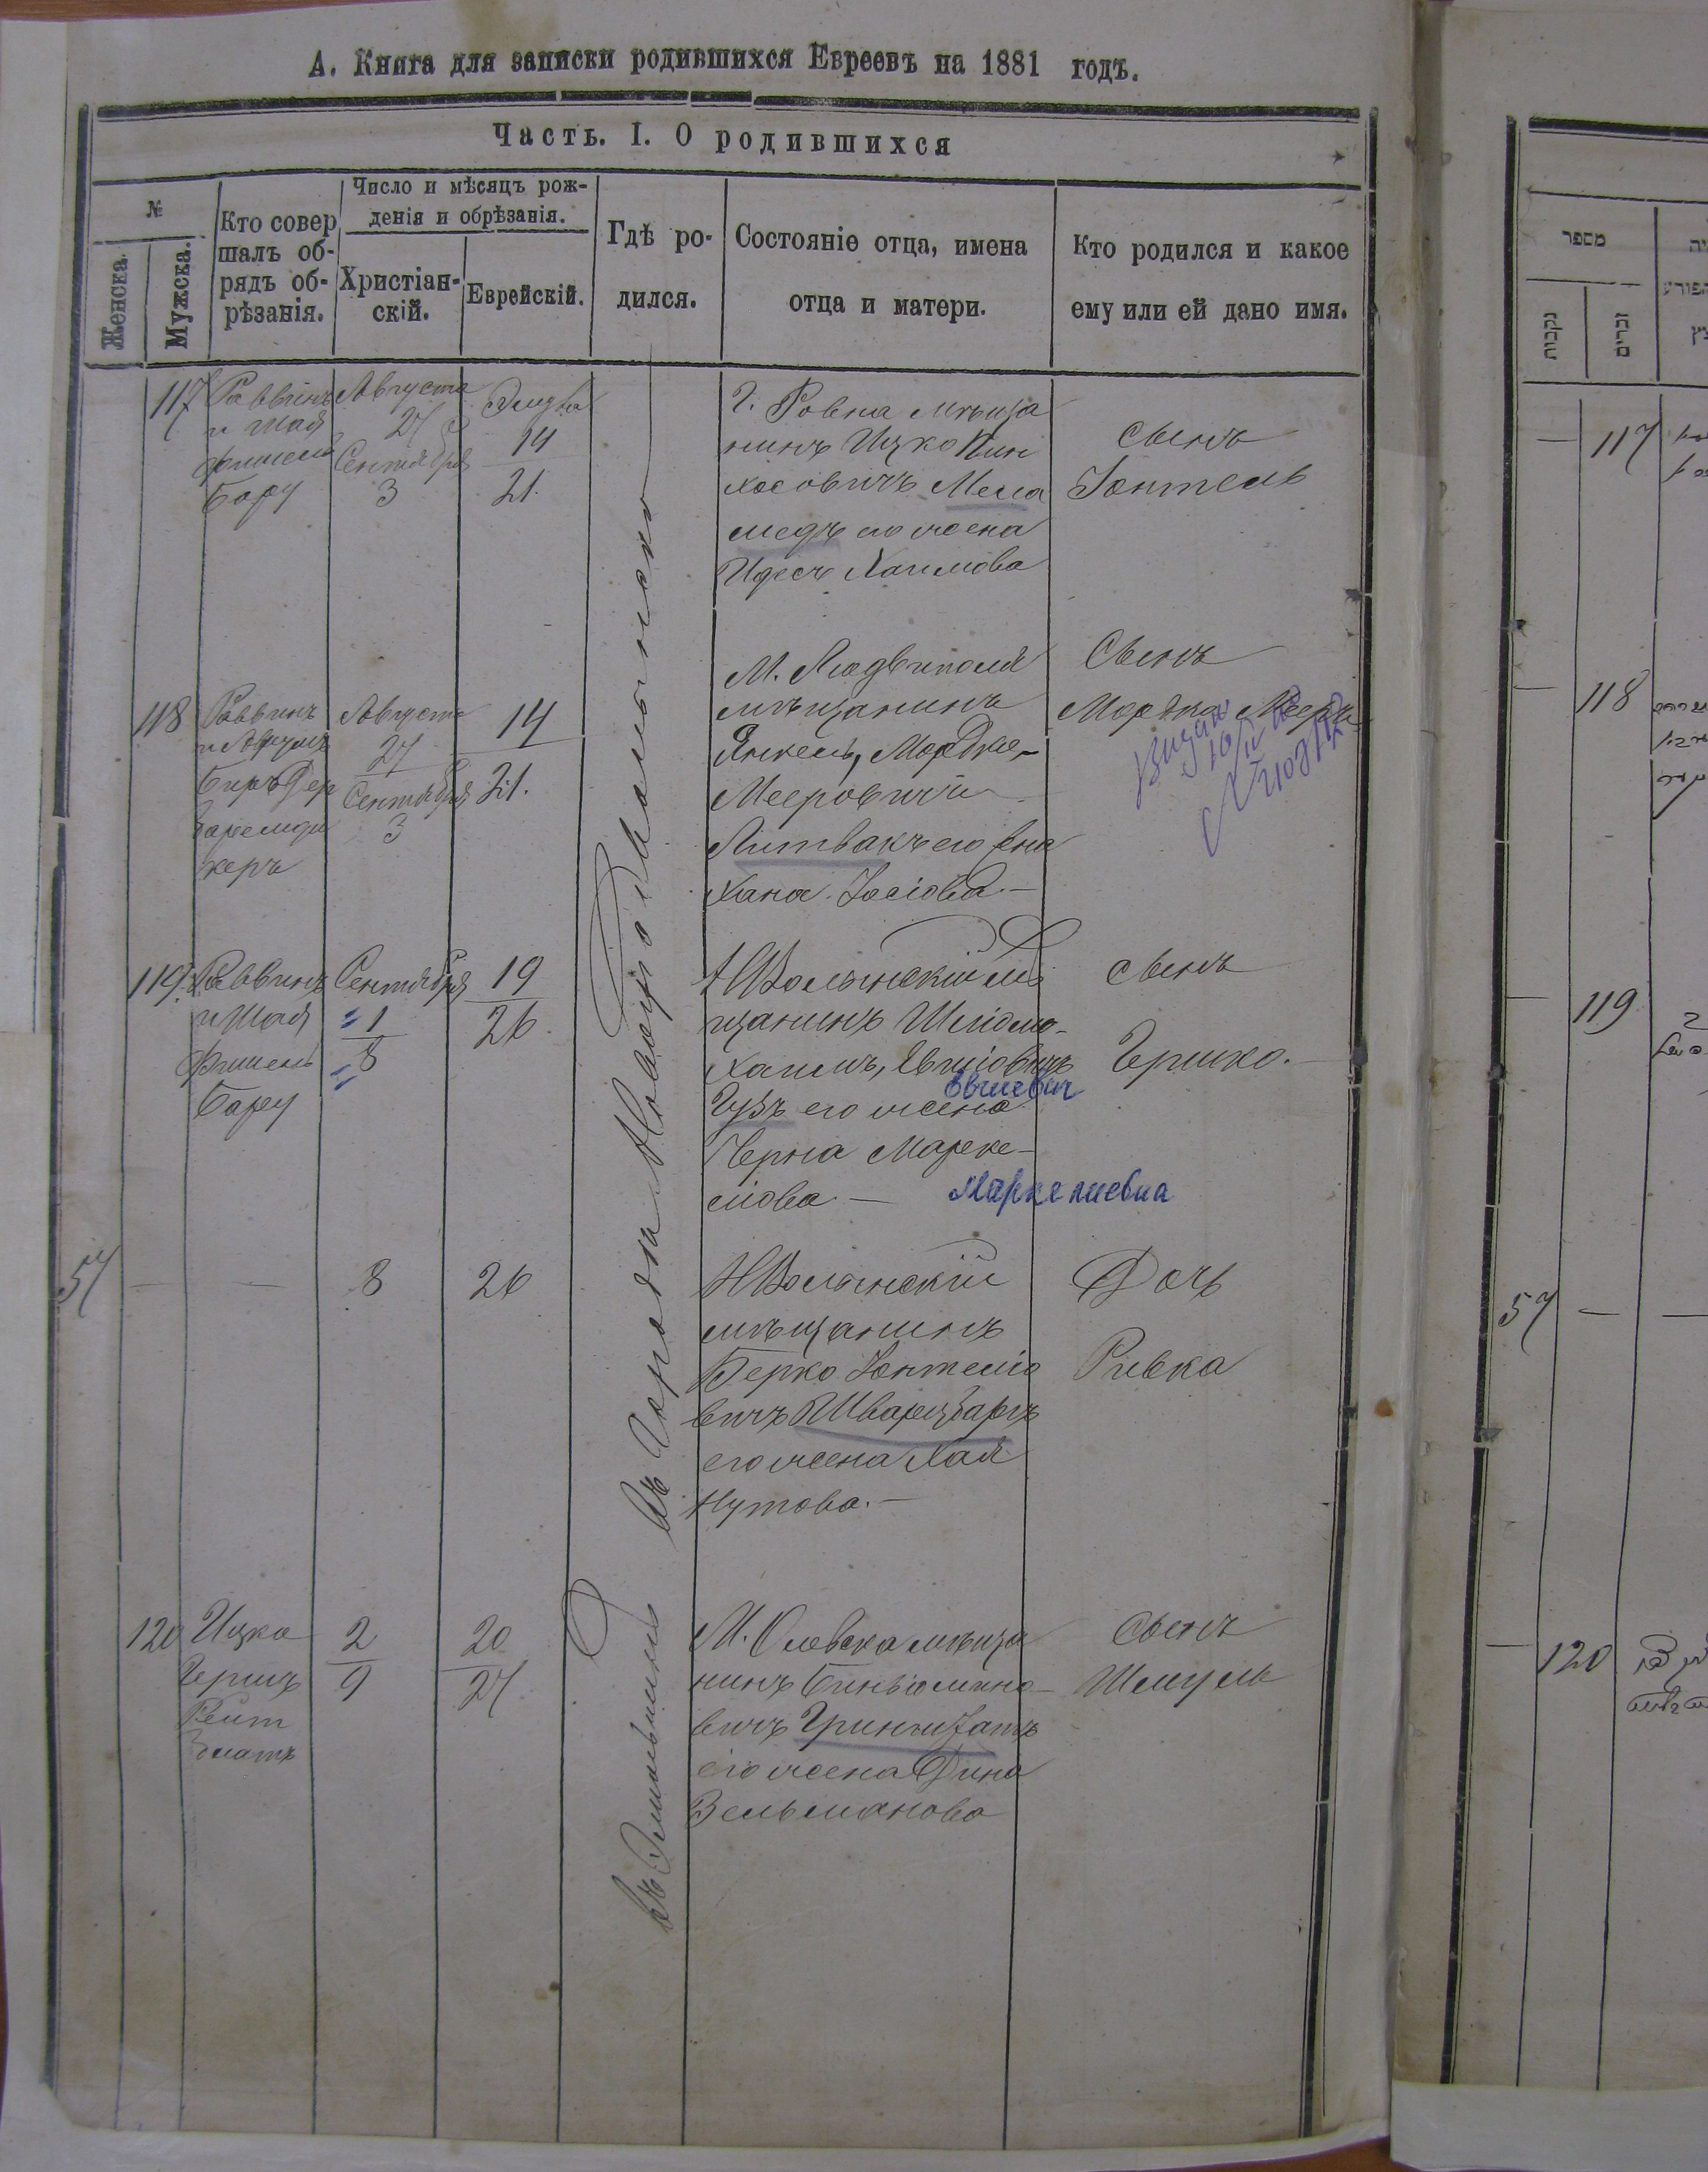 А. Книга для записки родившихся Евреевъ на 1881 годъ.
Часть. I. О родившихся
№
Женска.
Мужска.
Кто совер
шалъ об-
рядъ об-
рѣзанія.
Число и мѣсяцъ рож-
денія и обрѣзанія.
Христіан-
скій.
Еврейскій.
Гдѣ ро-
дился.
Состояніе отца, имена
отца и матери.
Кто родился и какое
ему или ей дано имя.
117
Раввинъ
и Шая
Фишель
Бару
Августа
27
Сентября
3
Элула
14
21.
Г. Ровна мѣща
нинъ Ицко Пин
хасовичъ Мела
медъ его жена
Идесъ Хаимова
сынъ
Іонтель
118
Раввинъ
и Аврумъ
Августа
27
Сентября
3
14
21.
М. Людвиполя
мѣщанинъ
Янкель, Мордко-
Мееровичъ
Литвакъ его жена
Хана Іосіова.—
Сынъ
Мордко Мееръ
119.
Раввинъ
и Шая
Фишель
Бару
Сентября
1
8
19
26.
НВолынскій мѣ
щанинъ Шліома-
Хаимъ, Евшіовичъ
Евшевич
Гузъ его жена
Черна Марке-
ліова —
Маркелиевна
сынъ
Гершко.—
57
—
—
8
26
НВолынскій
мѣщанинъ
Берко Іонтеліо
вичъ Шварцбартъ
его жена Хая
Нутова.—
Дочь
Ривка
120
Ицко
Гершъ
2
9
20
27
М. Олевска мѣща
нинъ Биньіомино-
вичъ
его жена Дина
Зельманова
сынъ
Шмуль
Въ Городѣ Новоградволынскѣ
въ Эмильчинѣ
מספר
נקבות
זכרים
— 117
— 118
— 119
57 — —
— 120